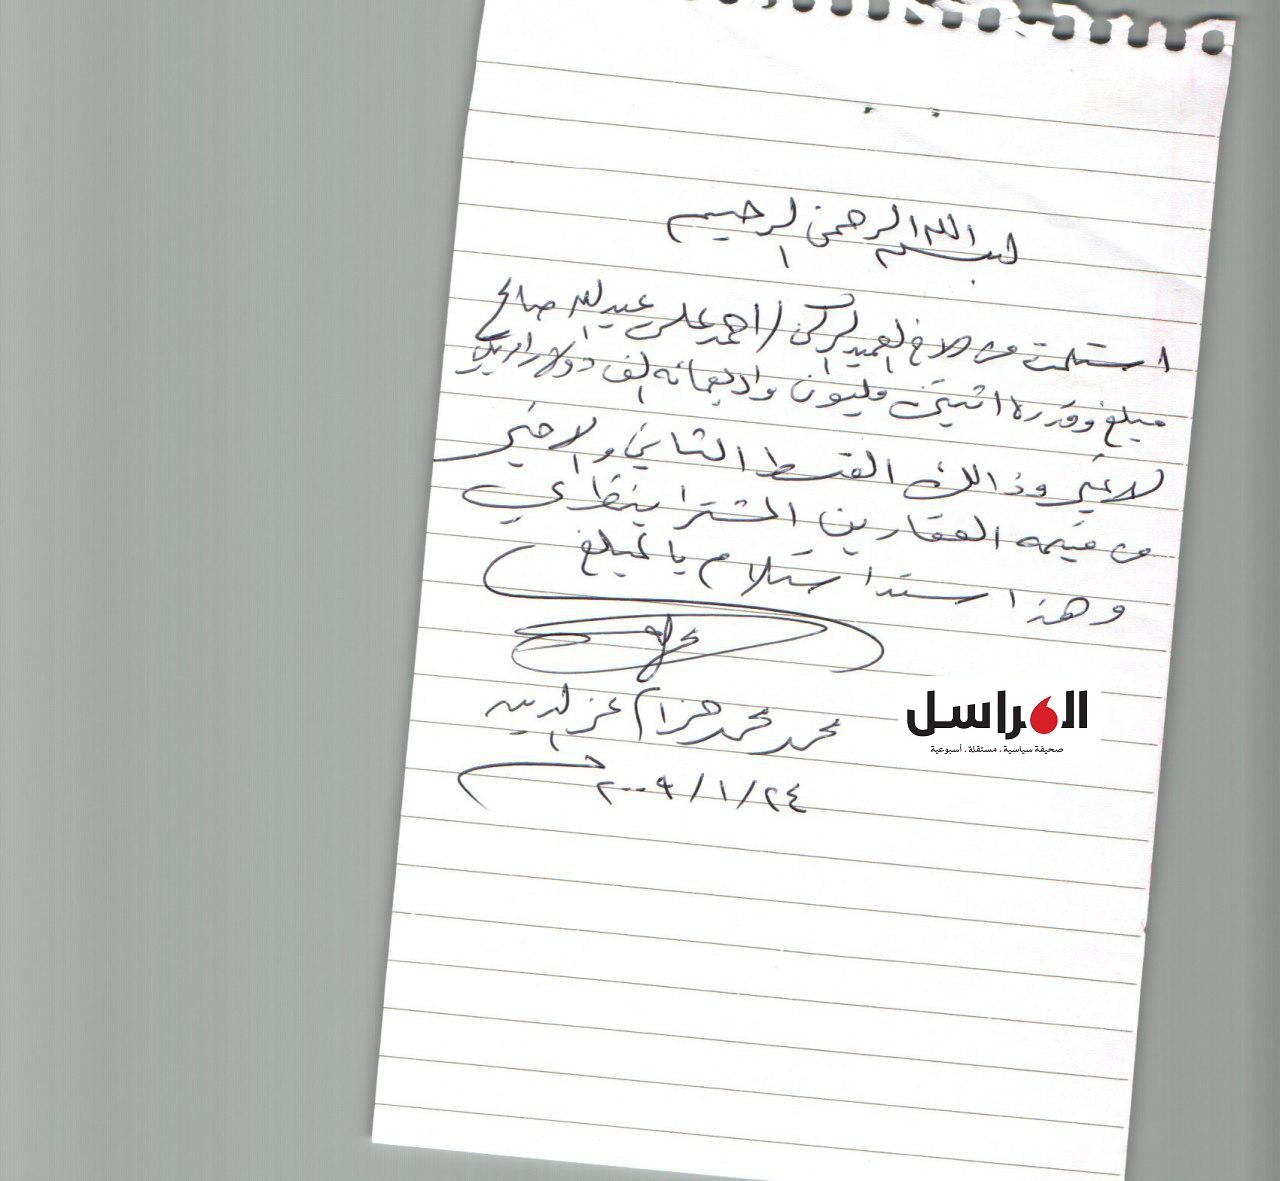 بسم الله الرحمن الرحيم
استلمت من الاخ العميد الركن / احمد علي عبدالله صالح
مبلغ وقدره اثنين مليون واربعمائه الف دولار امريكي
لاغير وذالك القسط الثاني والاخير
من قيمه العقارين المشترا ينقاعي
وهذا سندا ستلام بالمبلغ
محمد محمد حزام عز الدين
٢٤/١/٢٠٠٩م
المراسل
صحيفة سياسية . مستقلة . أسبوعية